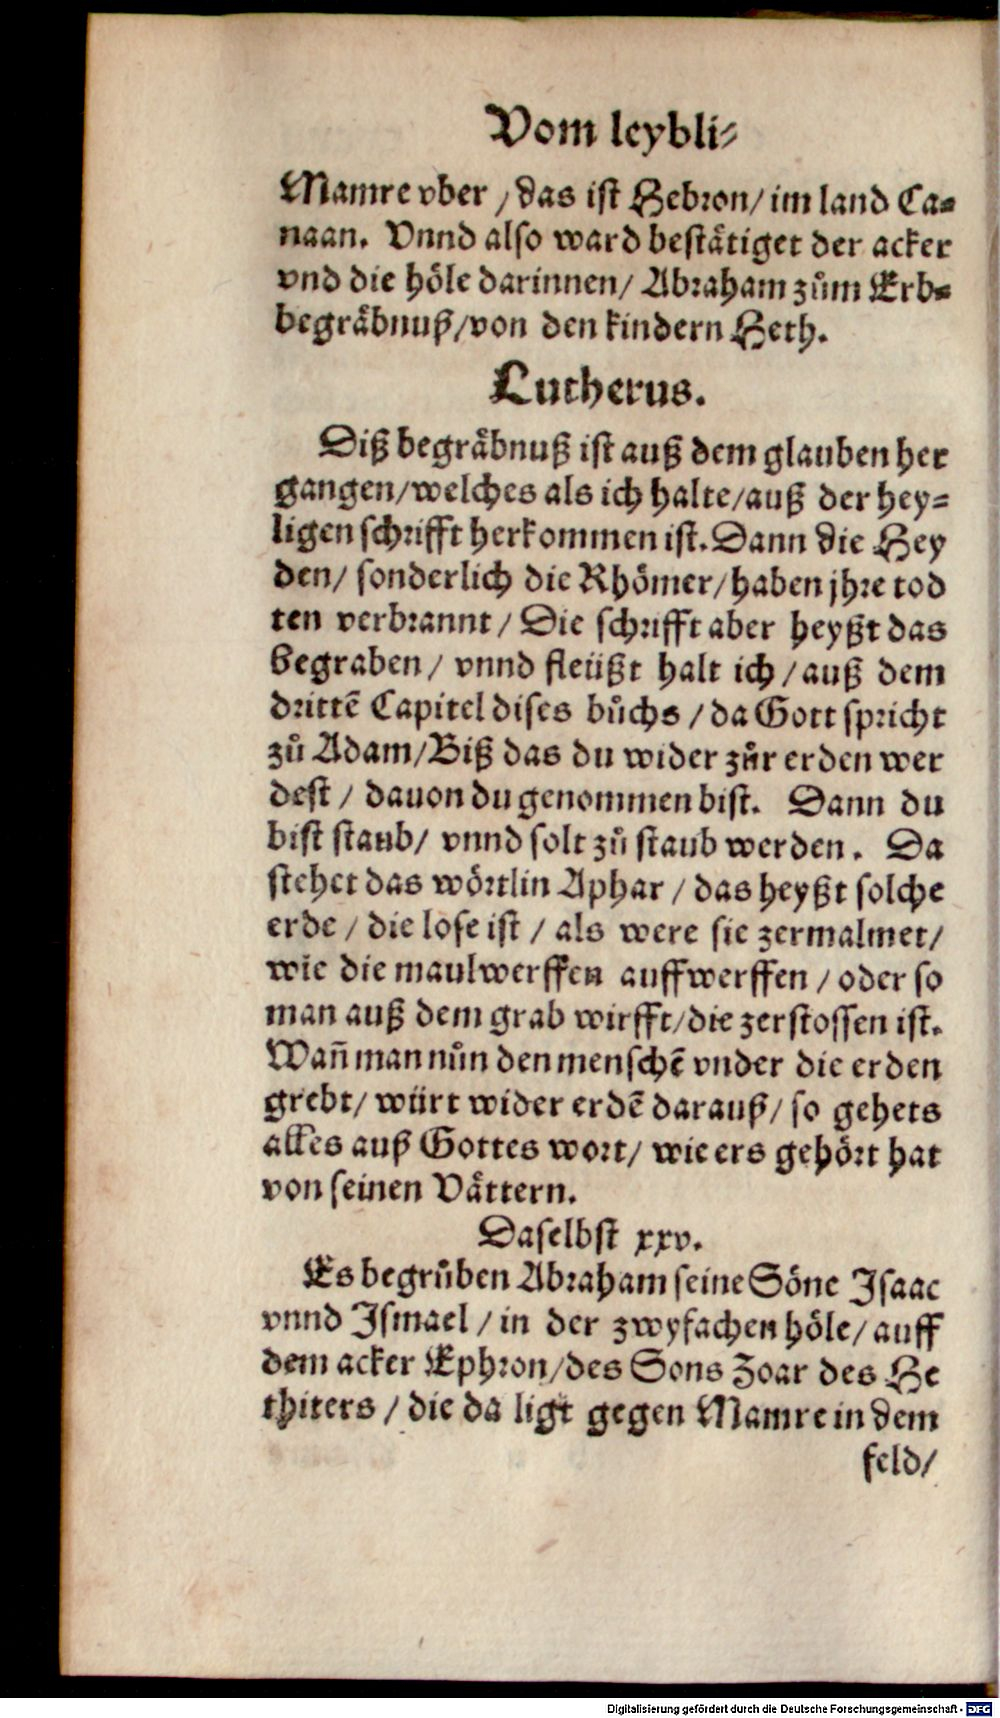 Vom leybli-
Mamre vber / das ist Hebron / im land Ca-
naan. Vnnd also ward bestätiget der acker
vnd die höle darinnen / Abraham zům Erb-
begräbnuß / von den kindern Heth.
Lutherus.
Diß begräbnuß ist auß dem glauben her
gangen / welches als ich halte / auß der hey-
ligen schrifft herkommen ist. Dann die Hey
den / sonderlich die Rhömer / haben jhre tod
ten verbrannt / Die schrifft aber heyßt das
begraben / vnnd fleüßt halt ich / auß dem
drittē Capitel dises bůchs / da Gott spricht
zů Adam / Biß das du wider zůr erden wer
dest / dauon du genommen bist. Dann du
bist staub / vnnd solt zů staub werden. Da
stehet das wörtlin Aphar / das heyßt solche
erde / die lose ist / als were sie zermalmet /
wie die maulwerffen auffwerffen / oder so
man auß dem grab wirfft / die zerstossen ist.
Wañ man nůn den menschē vnder die erden
grebt / würt wider erdē darauß / so gehets
alles auß Gottes wort / wie ers gehört hat
von seinen Vättern.
Daselbst xxv.
Es begrůben Abraham seine Söne Isaac
vnnd Ismael / in der zwyfachen höle / auff
dem acker Ephron / des Sons Zoar des He
thiters / die da ligt gegen Mamre in dem
feld /
Digitalisierung gefördert durch die Deutsche Forschungsgemeinschaft - DFG